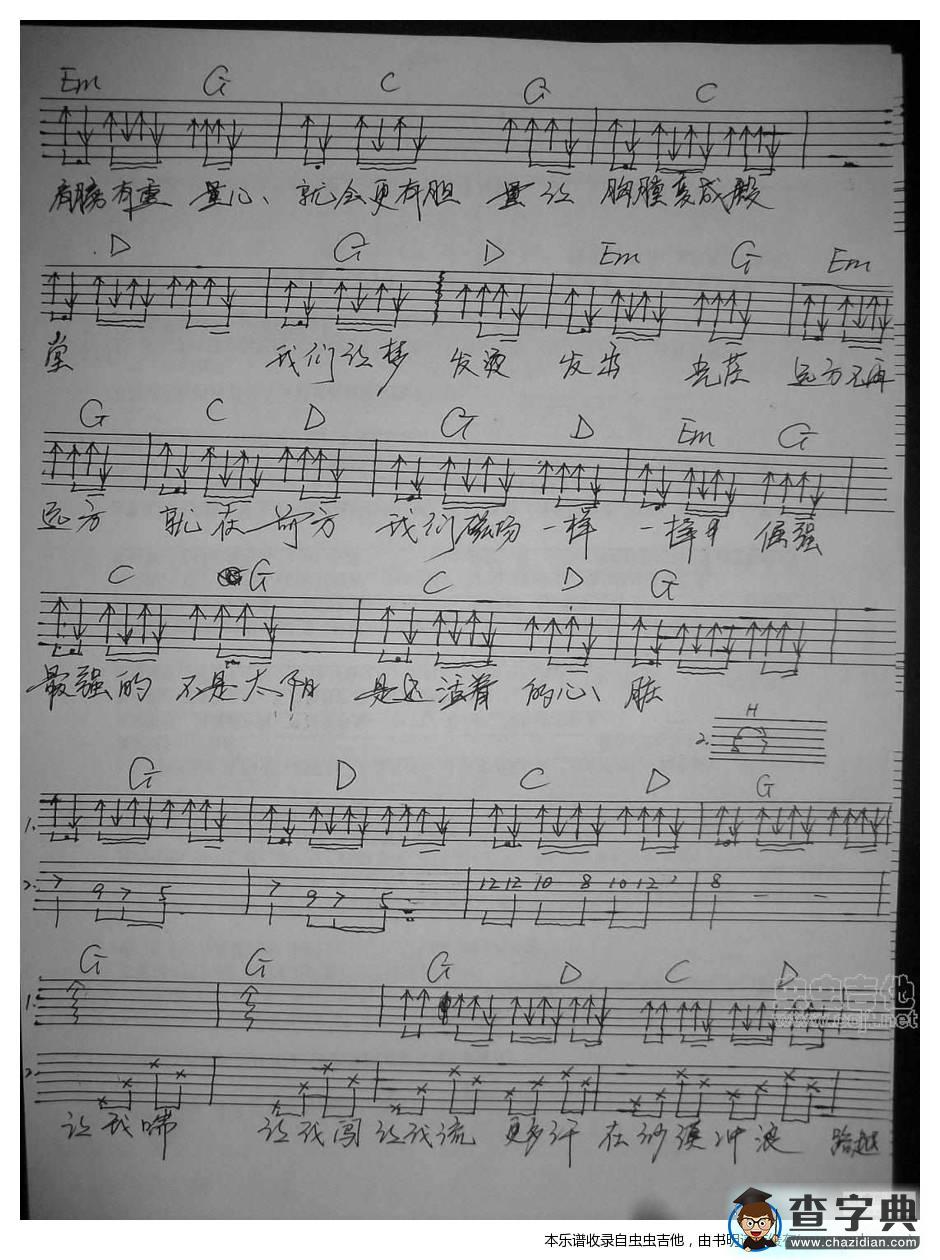 Em G C G C
有胸有量 就会更有胆 量 让 胸膛变成殿
D G D Em G Em
堂 我们让梦 发烫 发出 光芒 远方不再
G C D G D Em G
远方 就在前方 我们磁场 一样 一样 倔强
C G C D G
最强的 不是太阳 是还活着 的心 脏
H
2. 5 7
G D C D G
1.
2. 7 9 7 5 7 9 7 5 12 12 10 8 10 12 8 - -
G G G D C D
1.
2.
让我啼 让我闯 让我流 更多汗 在沙漠冲浪 跨越
虫虫吉他
www.ccjt.net
查字典
www.chazidian.com
本乐谱收录自虫虫吉他，由书明